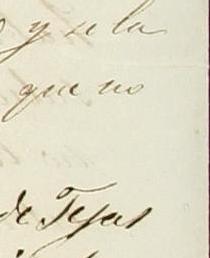 y a la
que no
de Tejas